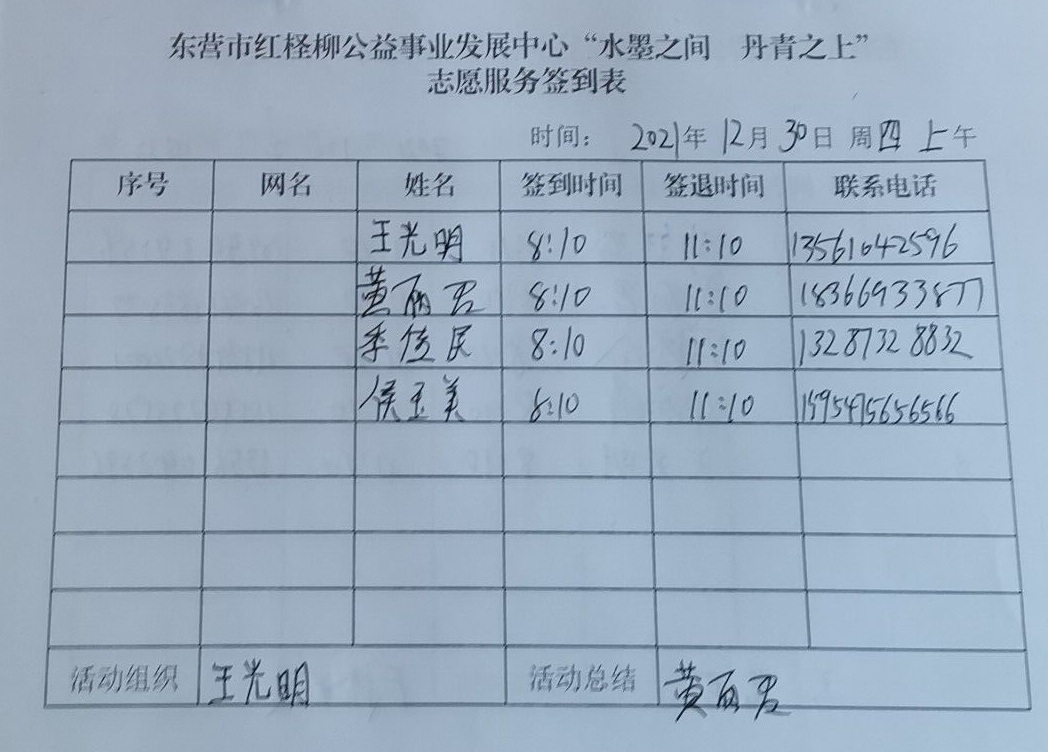 东营市红柽柳公益事业发展中心“水墨之间 丹青之上”
志愿服务签到表
时间: 2021年 12月 30日 周四 上午
序号 网名 姓名 签到时间 签退时间 联系电话
王光明 8:10 11:10 13561642596
黄丽君 8:10 11:10 18366933877
季俊民 8:10 11:10 13287328832
侯玉美 8:10 11:10
活动组织 王光明 活动总结 黄丽君